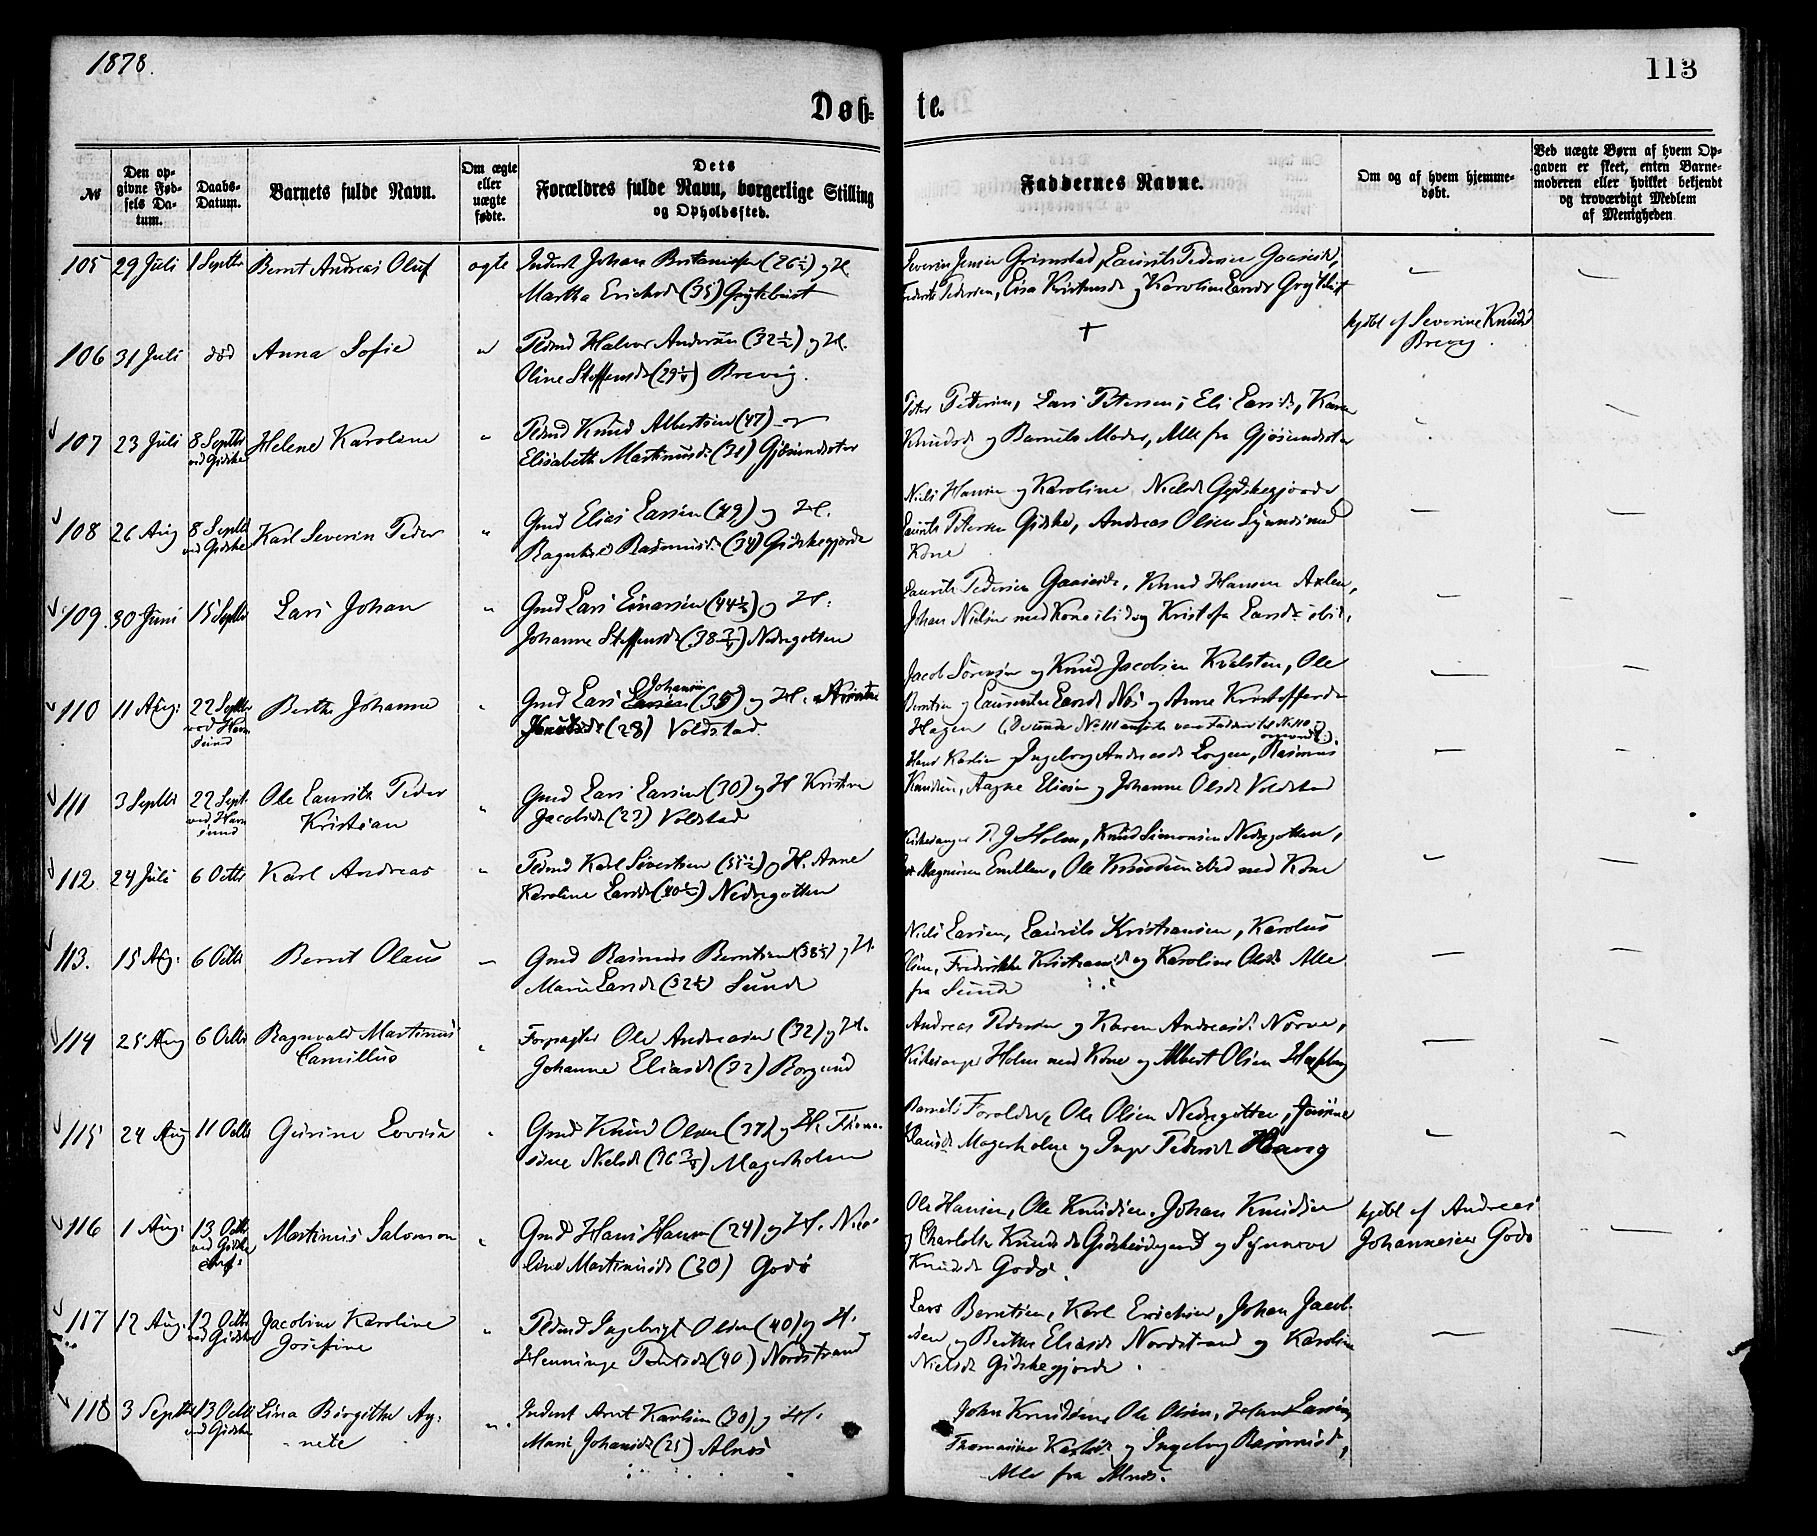 1878.
113
Døb-
te.
№
Den op-
givne Fød-
sels Da-
tum.
Daabs-
Datum.
Barnets fulde Navn.
Om ægte
eller
uægte
fødte.
Dets
Forældres fulde Navn, borgerlige Stilling
og Opholdssted.
Faddernes Navne.
Om og af hvem hjemme-
døbt.
Ved uægte Børn af hvem Op-
gaven er skeet, enten Barne-
moderen eller hvilket bekjendt
og troværdigt Medlem
af Menigheden
105 29 Juli 1 Septbr Bernt Andreas Oluf ægte Inderst Johan (26½) og H.
Martha Ericksd (35) Grytebust
Severin Jensen Grimstad, Laurits Pedersen Gaaseide,
Pedersen, Lisa og Karoline Larsd Grytebust
106 31 Juli død Anna Sofie " Pdmd Halvor Andersen (32½) og H.
Oline Steffensd (29¼) Brevig.
+
hjdbt af Severine Knudsd
Brevig.
107 23 Juli 8 Septbr
ved Gidske
Helene Karoline " Pdmd Knud Albertsen (47) og
Elisabeth Martinusd (31) Gjøsundsæter
Peter Pedersen, Lars Petersen, Eli Larsd, Karen
Knudsd og Barnets Moder, Alle fra Gjøsundsæter
108 26 Aug 8 Septbr
ved Gidske
Karl Severin Peder " Gmd Elias Larsen (49) og H.
Ragnhild Rasmusd (34) Gidskegjerde
Niels Hansen og Karoline Nielsd Gidskegjerde
Laurits Petersen Gidske, Andreas Olsen med
Kone
109 30 Juni 15 Septbr Lars Johan " Gmd Lars Einarsen (44½) og H.
Johanne Steffensd (38¾) Nedregotten
Laurits Pedersen Gaaseide, Knud Hansen Axlen,
Johan Nielsen med Kone ibid og Kristofa Larsd ibid.
110 11 Aug: 22 Septbr
ved Havn
sund
Berthe Johanne " Gmd Lars Johansen (35) og H.
Knudsd (28) Voldstad
Jacob Sørensen og Knud Jacobsen Kvalsten, Ole
Berntsen og Laurentse Larsd Nøs og Anne Kristoffersd
Hagen (De under No 111 anførte var Faddere til No 110 og
omvendt).
111 3 Septbr 22 Sept.
ved Havn
sund
Ole Laurits Peder
Kristian
" Gmd Lars Larsen (30) og H Kristine
Jacobsd (23) Voldstad
Hans Karlsen og Ingeborg Andreasd Longen, Rasmus
Knudsen, Aagne Eliasen og Johanne Olsd Voldstad
112 24 Juli 6 Octbr Karl Andreas " Pdmd Karl Sivertsen (35½) og H. Anne
Karoline Larsd (40½) Nedregotten
Kirkesanger P. J. Holm, Knud Simonsen Nedregotten,
Magnusen Emblem, Ole Knudsen ibid med Kone
113. 15 Aug: 6 Octbr Bernt Olaus " Gmd Rasmus Berntsen (38½) og H.
Marie Larsd (32½) Sunde
Niels Larsen, Laurits Kristiansen, Karolus
Olsen, Fredrikke Kristiansd og Karoline Olsd. Alle
fra Sunde
114 25 Aug 6 Octbr Ragnvald Martinus
Camillus
" Forpagter Ole Andreasen (32) og H.
Johanne Eliasd (32) Borgund
Andreas Pedersen og Karen Andreasd. Nørve,
Kirkesanger Holm med Kone og Albert Olsen
115 24 Aug 11 Octbr Gurine Lovise " Gmd Knud Olsen (37) og H. Thoma-
sine Nielsd (36¾) Magerholm
Barnets Foreldre, Ole Olsen Nedregotten, Josefine
Magerholm og Inger Pedersd
116 1 Aug: 13 Octbr
ved Gidske
Martinus Salomon " Gmd Hans Hansen (24) og H. Nico-
line Martinusd (20) Godø
Ole Hansen, Ole Knudsen, Johan Knudsen
og Charlotte Knudsd Gidskeødegaard og Synneve
Knudsd Godø.
hjdbt af Andreas
Johannesen Godø
117 12 Aug: 13 Octbr
ved Gidske
Jacobine Karoline
Josefine
" Pdmd Ingebrigt Olsen (40) og H.
Henninge Petersd (40) Nordstrand
Lars Berntsen, Karl Ericksen, Johan Jacob-
sen og Berthe Eliasd Nordstrand og Karoline
Nielsd Gidskegjerde.
118 3 Septbr 13 Octbr
ved Gidske
Lina Birgitte Ag-
nete
" Inderst Arnt Karlsen (30) og H.
Marie Johansd (25) Alnøs
John Knudsen, Ole Olsen, Hans Larsen,
Thomasine Karlsd og Ingeborg Rasmusd,
Alle fra Alnøs.